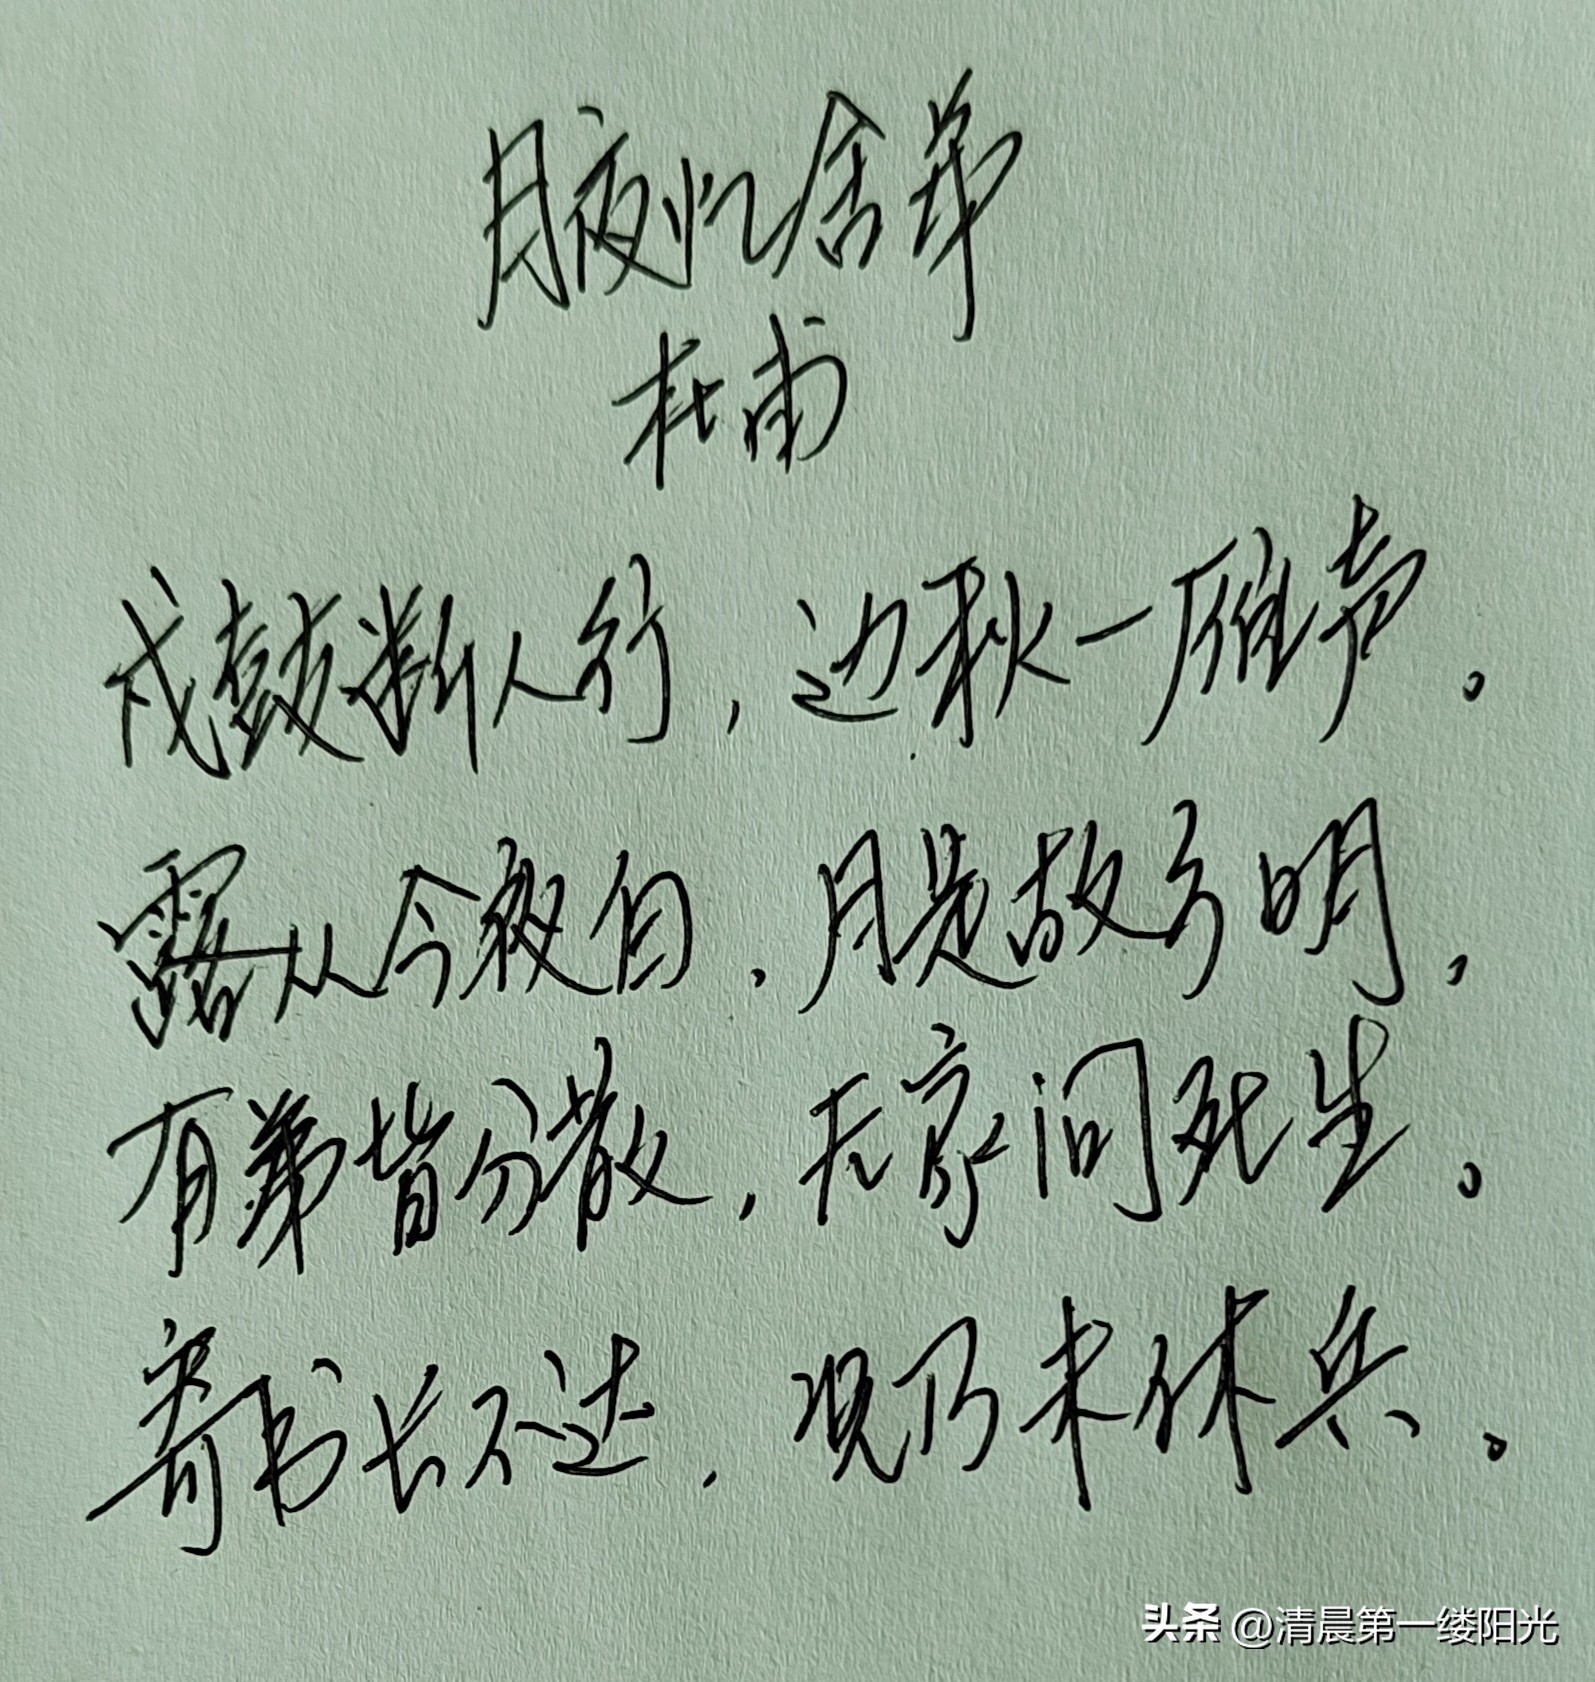 月夜忆舍弟
杜甫
戍鼓断人行,边秋一雁声。
露从今夜白,月是故乡明,
有弟皆分散,无家问死生。
寄书长不达,况乃未休兵。
头条 @清晨第一缕阳光